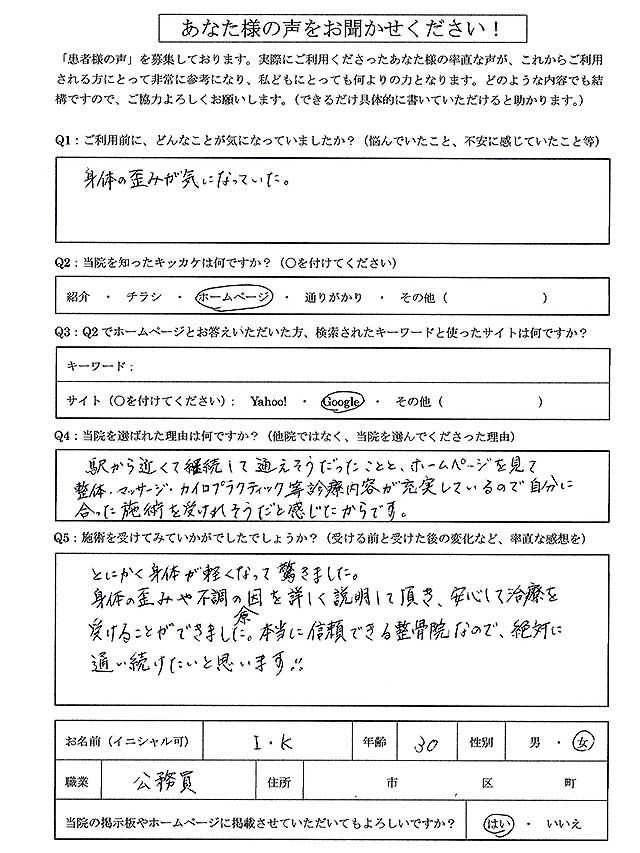 あなた様の声をお聞かせください！
「患者様の声」を募集しております。実際にご利用くださったあなた様の率直な声が、これからご利用
される方にとって非常に参考になり、私どもにとっても何よりの力となります。どのような内容でも結
構ですので、ご協力よろしくお願いします。（できるだけ具体的に書いていただけると助かります。）
Q1：ご利用前に、どんなことが気になっていましたか？（悩んでいたこと、不安に感じていたこと等）
身体の歪みが気になっていた。
Q2：当院を知ったキッカケは何ですか？（〇を付けてください）
紹介 ・ チラシ ・ ホームページ ・ 通りがかり ・ その他（ ）
Q3：Q2でホームページとお答えいただいた方、検索されたキーワードと使ったサイトは何ですか？
キーワード：
サイト（〇を付けてください）： Yahoo! ・ Google ・ その他（ ）
Q4：当院を選ばれた理由は何ですか？（他院ではなく、当院を選んでくださった理由）
駅から近くて継続して通えそうだったことと、ホームページを見て
整体・マッサージ・カイロプラクティック等診療内容が充実しているので自分に
合った施術を受けれそうだと感じたからです。
Q5：施術を受けてみていかがでしたでしょうか？（受ける前と受けた後の変化など、率直な感想を）
とにかく身体が軽くなって驚きました。
身体の歪みや不調の原因を詳しく説明して頂き、安心して治療を
受けることができました。本当に信頼できる整骨院なので、絶対に
通い続けたいと思います!!
お名前（イニシャル可） I・K 年齢 30 性別 男 ・ 女
職業 公務員 住所 市 区 町
当院の掲示板やホームページに掲載させていただいてもよろしいですか？ はい ・ いいえ